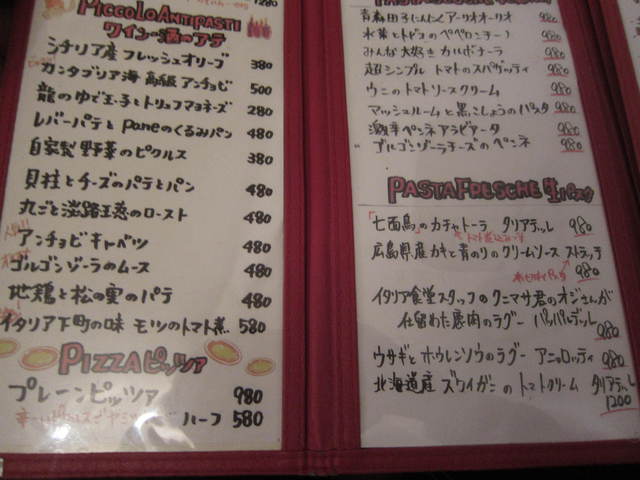 1280
PICCOLO ANTIPASTI
ワインの酒のアテ
シチリア産 フレッシュオリーブ 380
カンタブリア海 高級 アンチョビ 500
龍のゆで玉子とトリュフマヨネーズ 280
レバーパテと Paneのくるみパン 480
自家製 野菜のピクルス 380
貝柱とチーズのパテとパン 480
丸ごと淡路玉葱のロースト 480
アンチョビキャベツ 480
ゴルゴンゾーラのムース 480
地鶏と松の実のパテ 480
イタリア下町の味 モツのトマト煮 580
PIZZA ピッツァ
プレーンピッツァ 980
ハーフ 580
青森田子にんにく アーリオオーリオ 980
水菜とトビコの ペペロンチーノ 980
みんな大好き カルボナーラ 980
超シンプル トマトのスパゲッティ 980
ウニのトマトソースクリーム 980
マッシュルームと黒こしょうのパスタ 980
激辛ペンネアラビアータ 980
ゴルゴンゾーラチーズのペンネ 980
PASTA FRESCHE 生パスタ
「七面鳥」のカチャトーラ タリアテッレ 980
トマト煮込みです
広島県産カキと青のりのクリームソース ストラッチ 980
イタリア食堂スタッフのクニマサ君のオジさんが
仕留めた鹿肉のラグー パッパルデッレ 980
ウサギとホウレンソウのラグー アニョロッティ 980
北海道産 ズワイガニのトマトクリーム タリアテッレ 1200